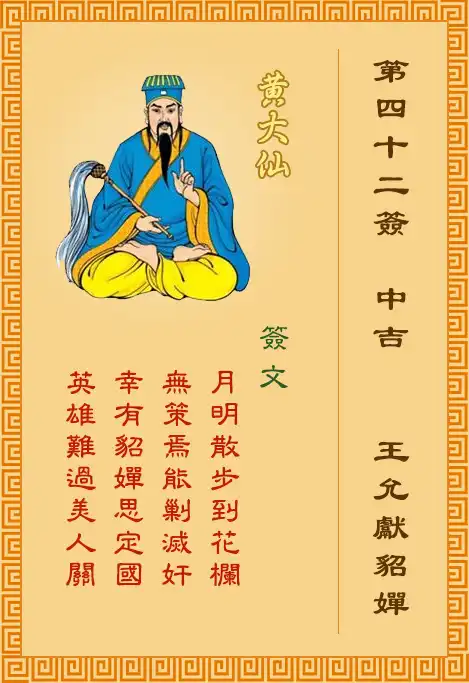 第四十二簽 中吉 王允獻貂嬋
黃大仙
簽文
月明散步到花欄
無策焉能剿滅奸
幸有貂嬋思定國
英雄難過美人關